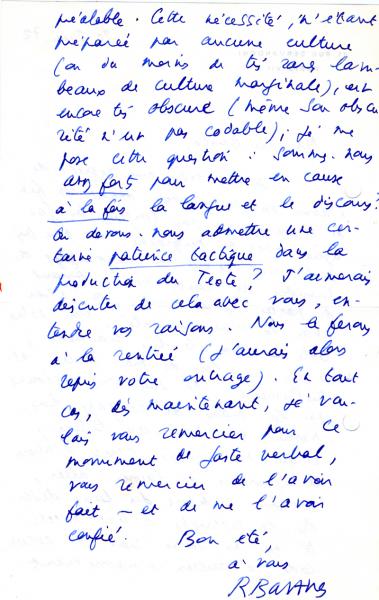 préalable. Cette nécessité, n'étant
préparée par aucune culture
(ou du moins de très rares lam-
beaux de culture marginale), est
encore très obscure (même son obscu-
rité n'est pas codable); je me
pose cette question : sommes-nous
assez forts pour mettre en cause
à la fois la langue et le discours?
Ou devons-nous admettre une cer-
taine patience tactique dans la
production du Texte? J'aimerais
discuter de cela avec vous, en-
tendre vos raisons. Nous le ferons
à la rentrée (j'aurais alors
repris votre ouvrage). En tout
cas, dès maintenant, je vou-
lais vous remercier pour ce
monument de faste verbal,
vous remercier de l'avoir
fait – et de me l'avoir
confié. Bon été,
à vous
R Barthes